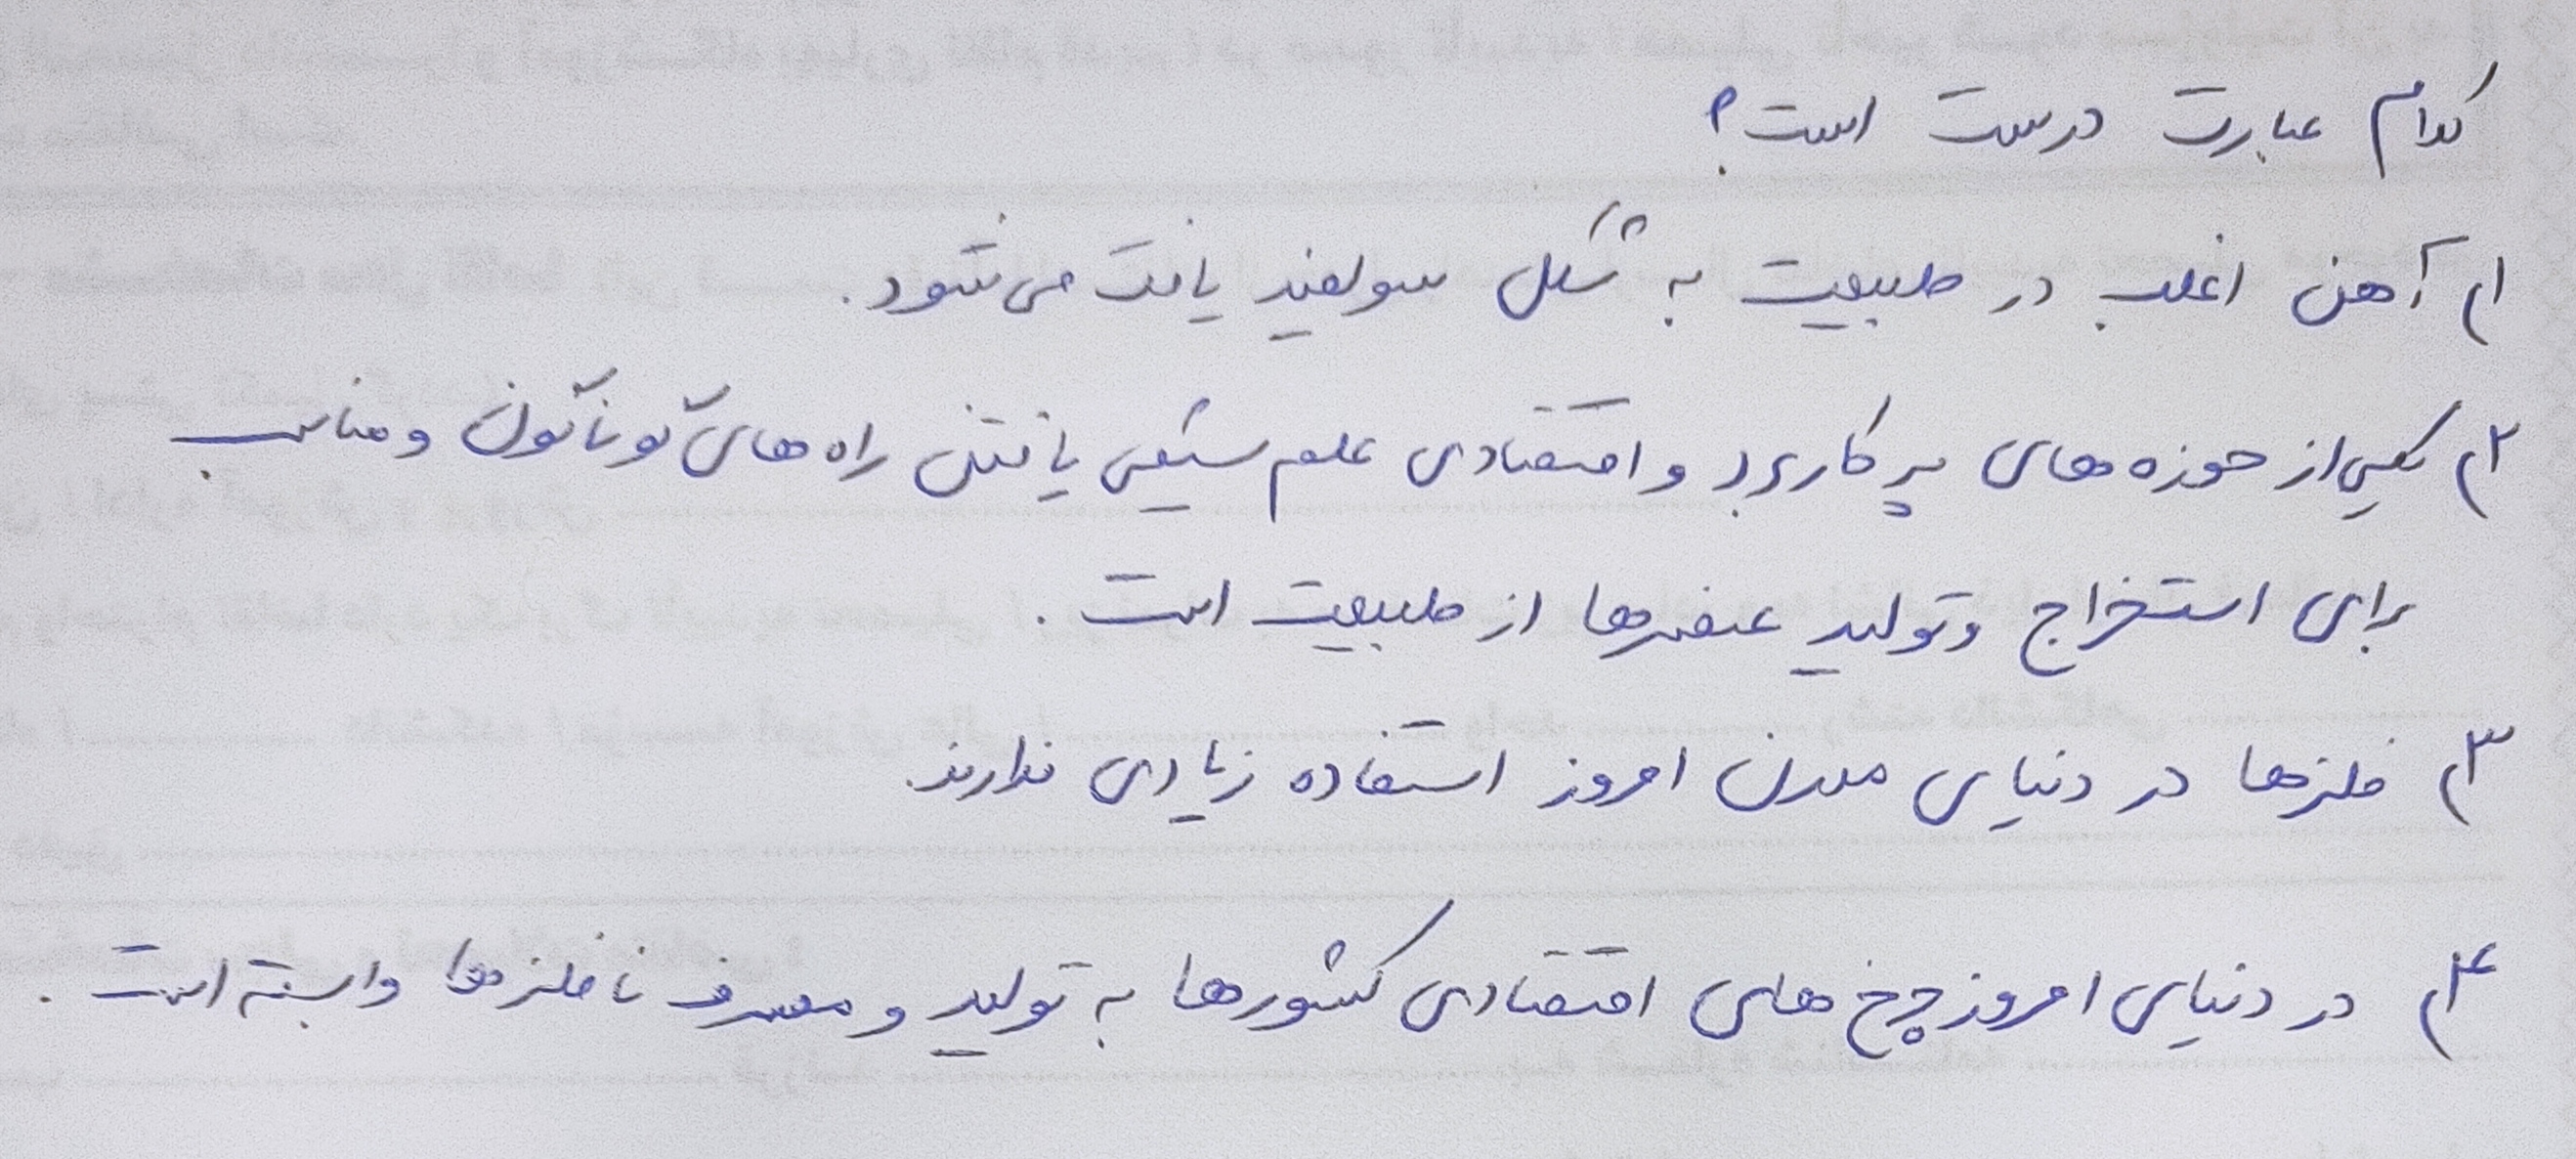 کدام عبارت درست است؟
۱) آهن اغلب در طبیعت به شکل سولفید یافت می‌شود.
۲) یکی از حوزه‌های پر کاربرد و اقتصادی علم شیمی یافتن راه‌های گوناگون و مناسب
برای استخراج و تولید عنصرها از طبیعت است.
۳) فلزها در دنیای مدرن امروز استفاده زیادی ندارند.
۴) در دنیای امروز چرخ‌های اقتصادی کشورها به تولید و مصرف نافلزها وابسته است.